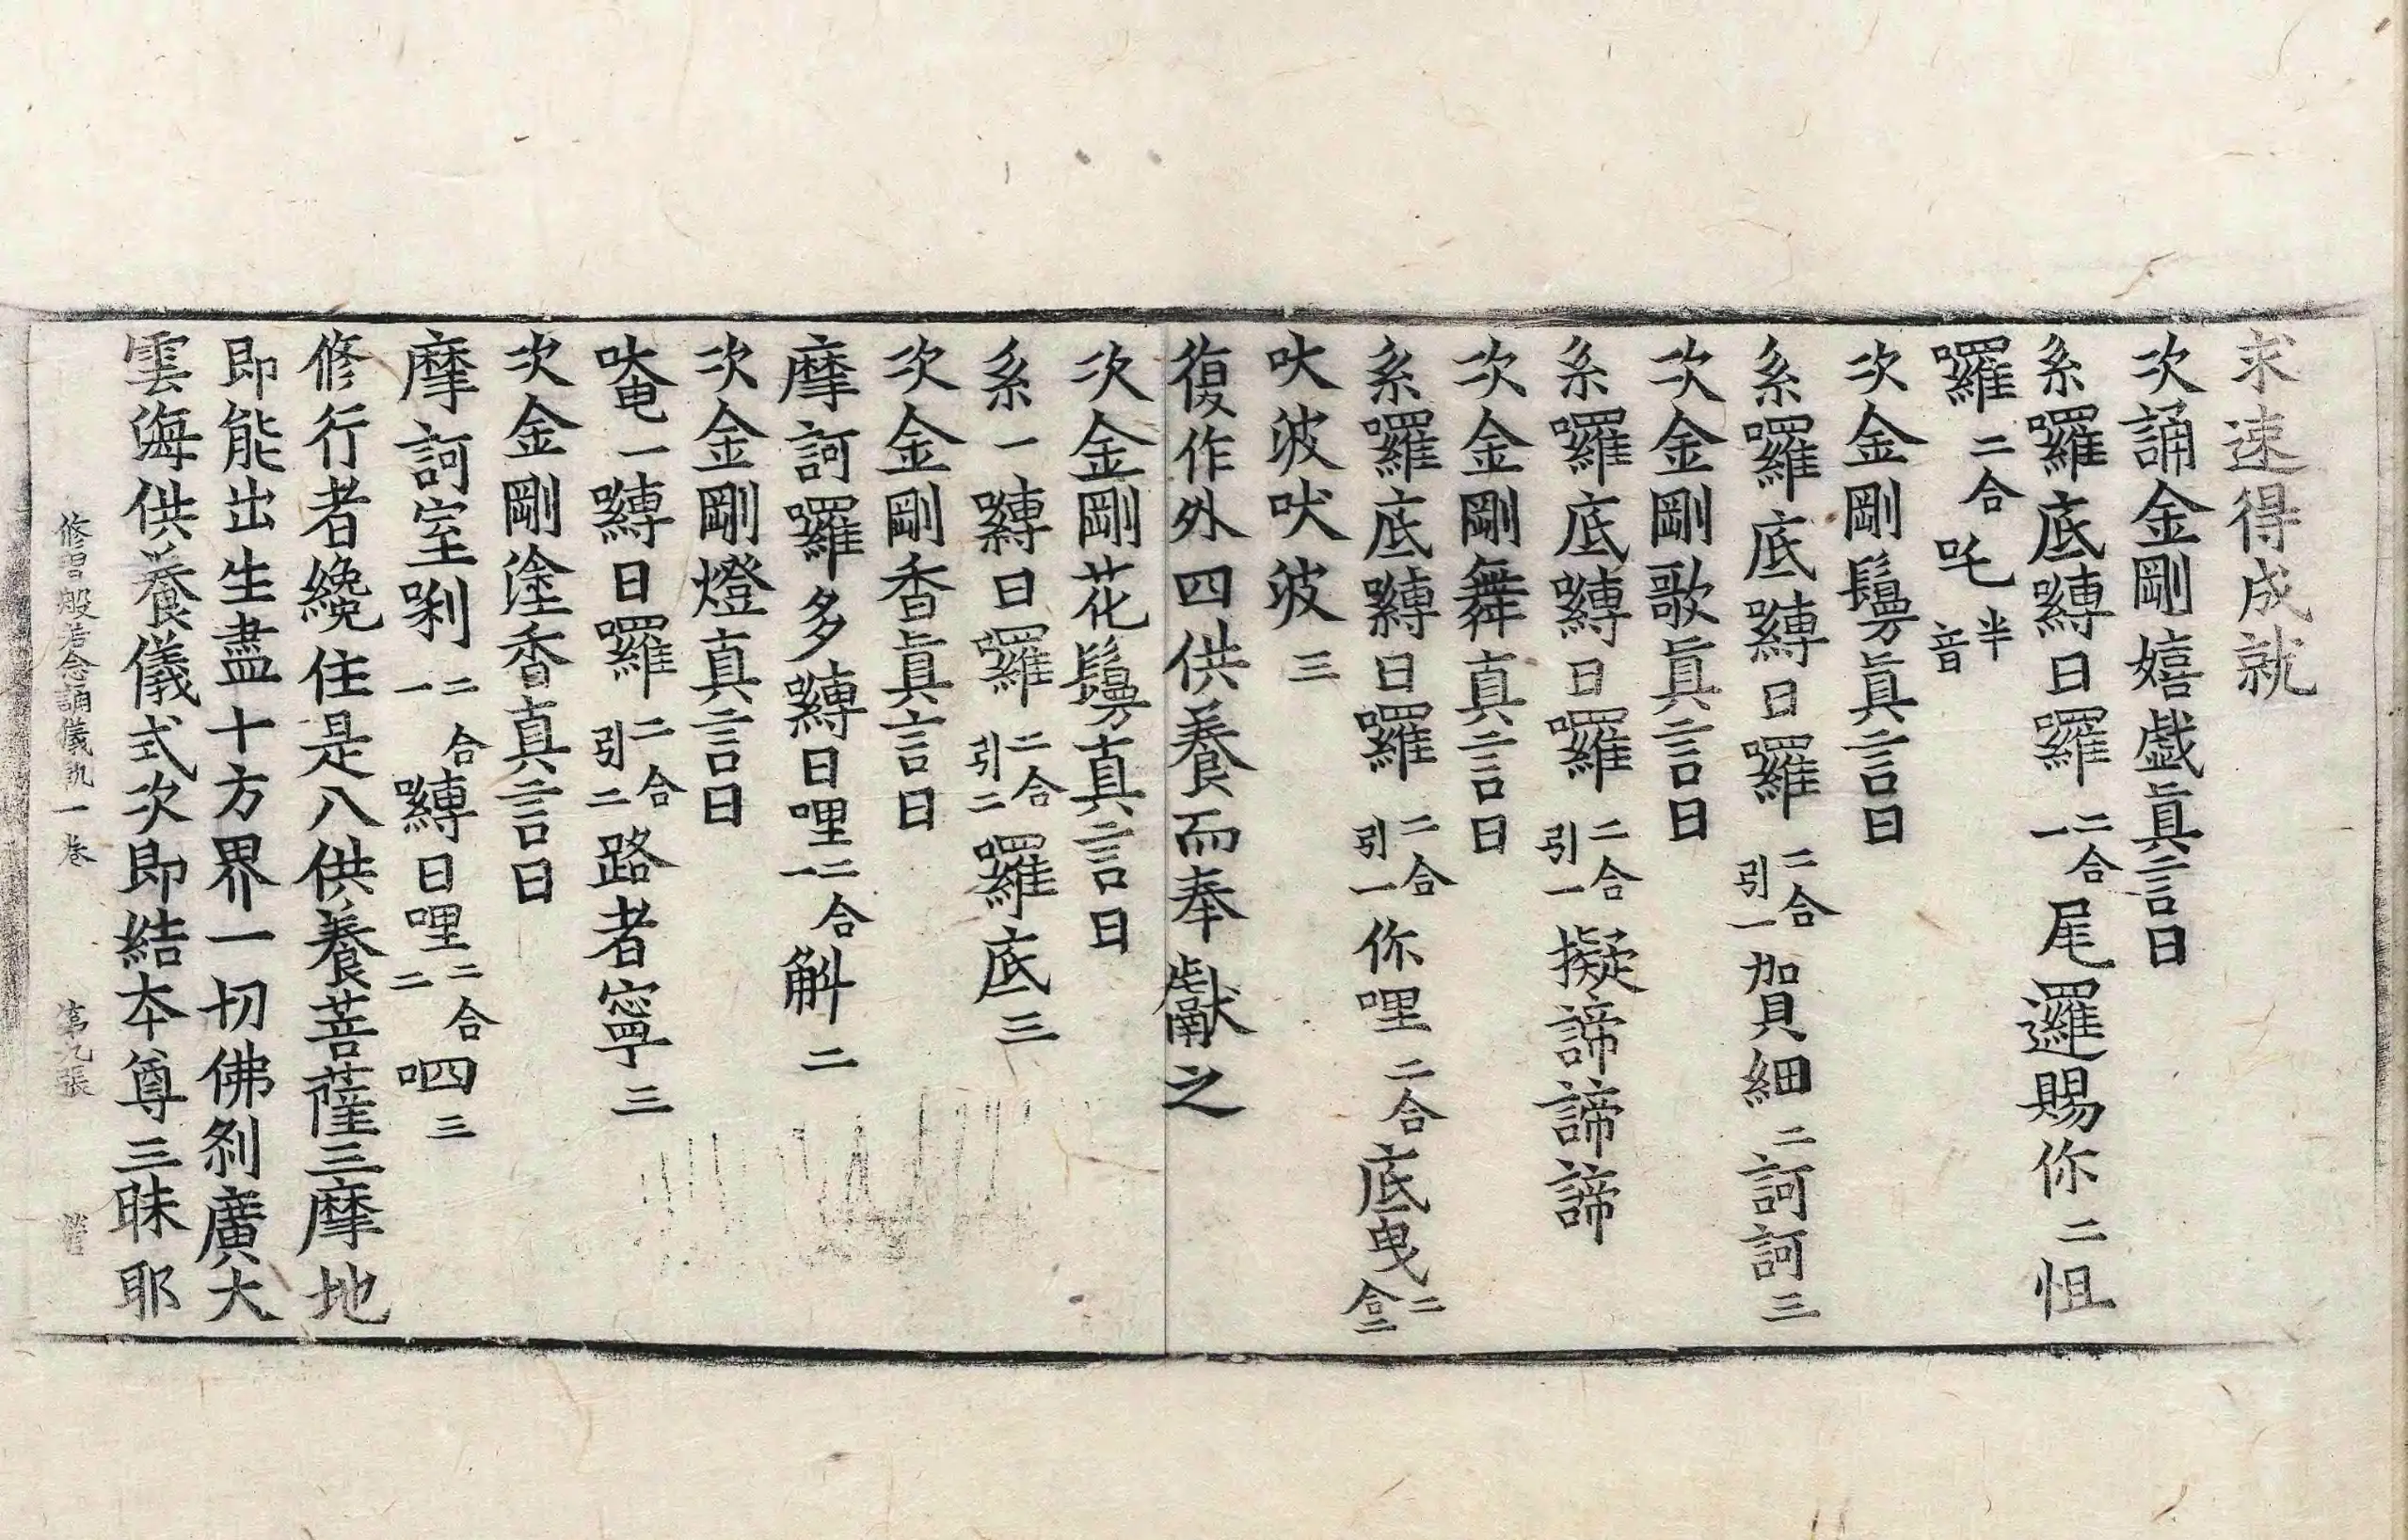 求速得成就
次誦金剛嬉戲眞言曰
系囉底嚩日囉二合一尾邏賜你二怚
囉二合吒半音
次金剛鬘眞言曰
系囉底嚩日囉二合引一賀細二訶訶三
次金剛歌眞言曰
系囉底嚩日囉二合引一擬諦諦諦
次金剛舞真言曰
系囉底嚩日囉二合引一你哩二合底曳二合二
吠波吠波三
復作外四供養而奉獻之
次金剛花鬘真言曰
系一嚩日囉二合引二囉底三
次金剛香眞言曰
摩訶囉多嚩日哩二合一斛二
次金剛燈真言曰
唵一嚩日囉二合引二路者寧三
次金剛塗香真言曰
摩訶室唎二合一嚩日哩二合二呬三
修行者纔住是八供養菩薩三摩地
即能出生盡十方界一切佛刹廣大
雲海供養儀式次即結本尊三昧耶
修習般若念誦儀軌一卷 第九張